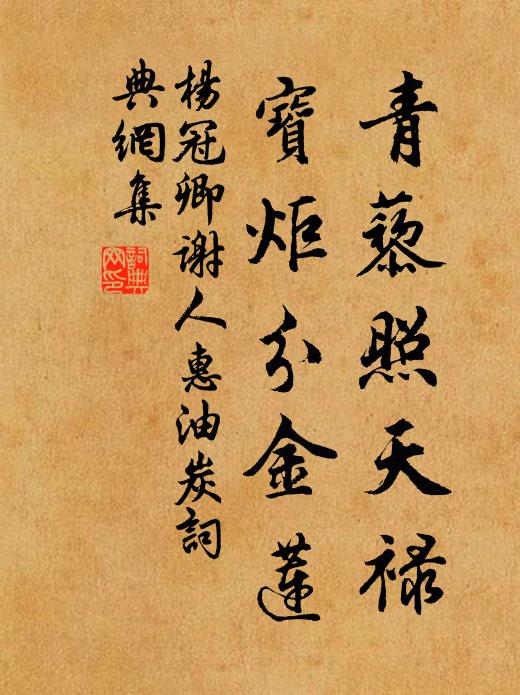 青藜照天禄
寶炬分金蓮
楊冠卿謝人惠油炭詞
典網集
詞典
网印